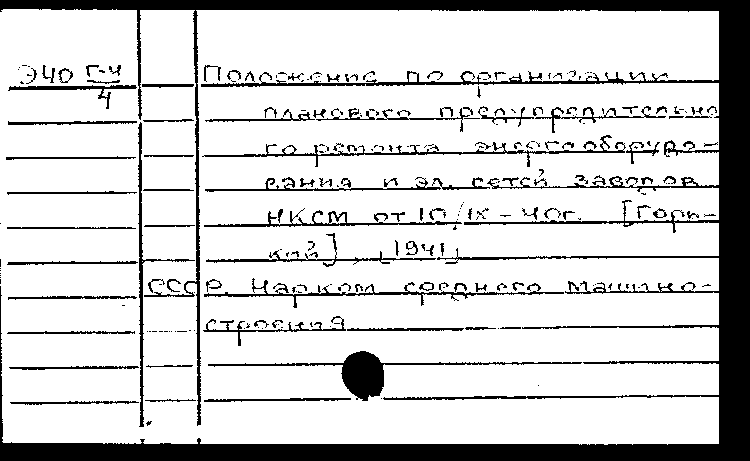 Э40 Г-4 Положение по организации
4
планового предупредительно
го ремонта энергооборудо-
вания и эл. сетей заводов
НКСМ от 10/IX-40г. [Горь-
кий], [1941]
СССР. Нарком среднего машино-
строения